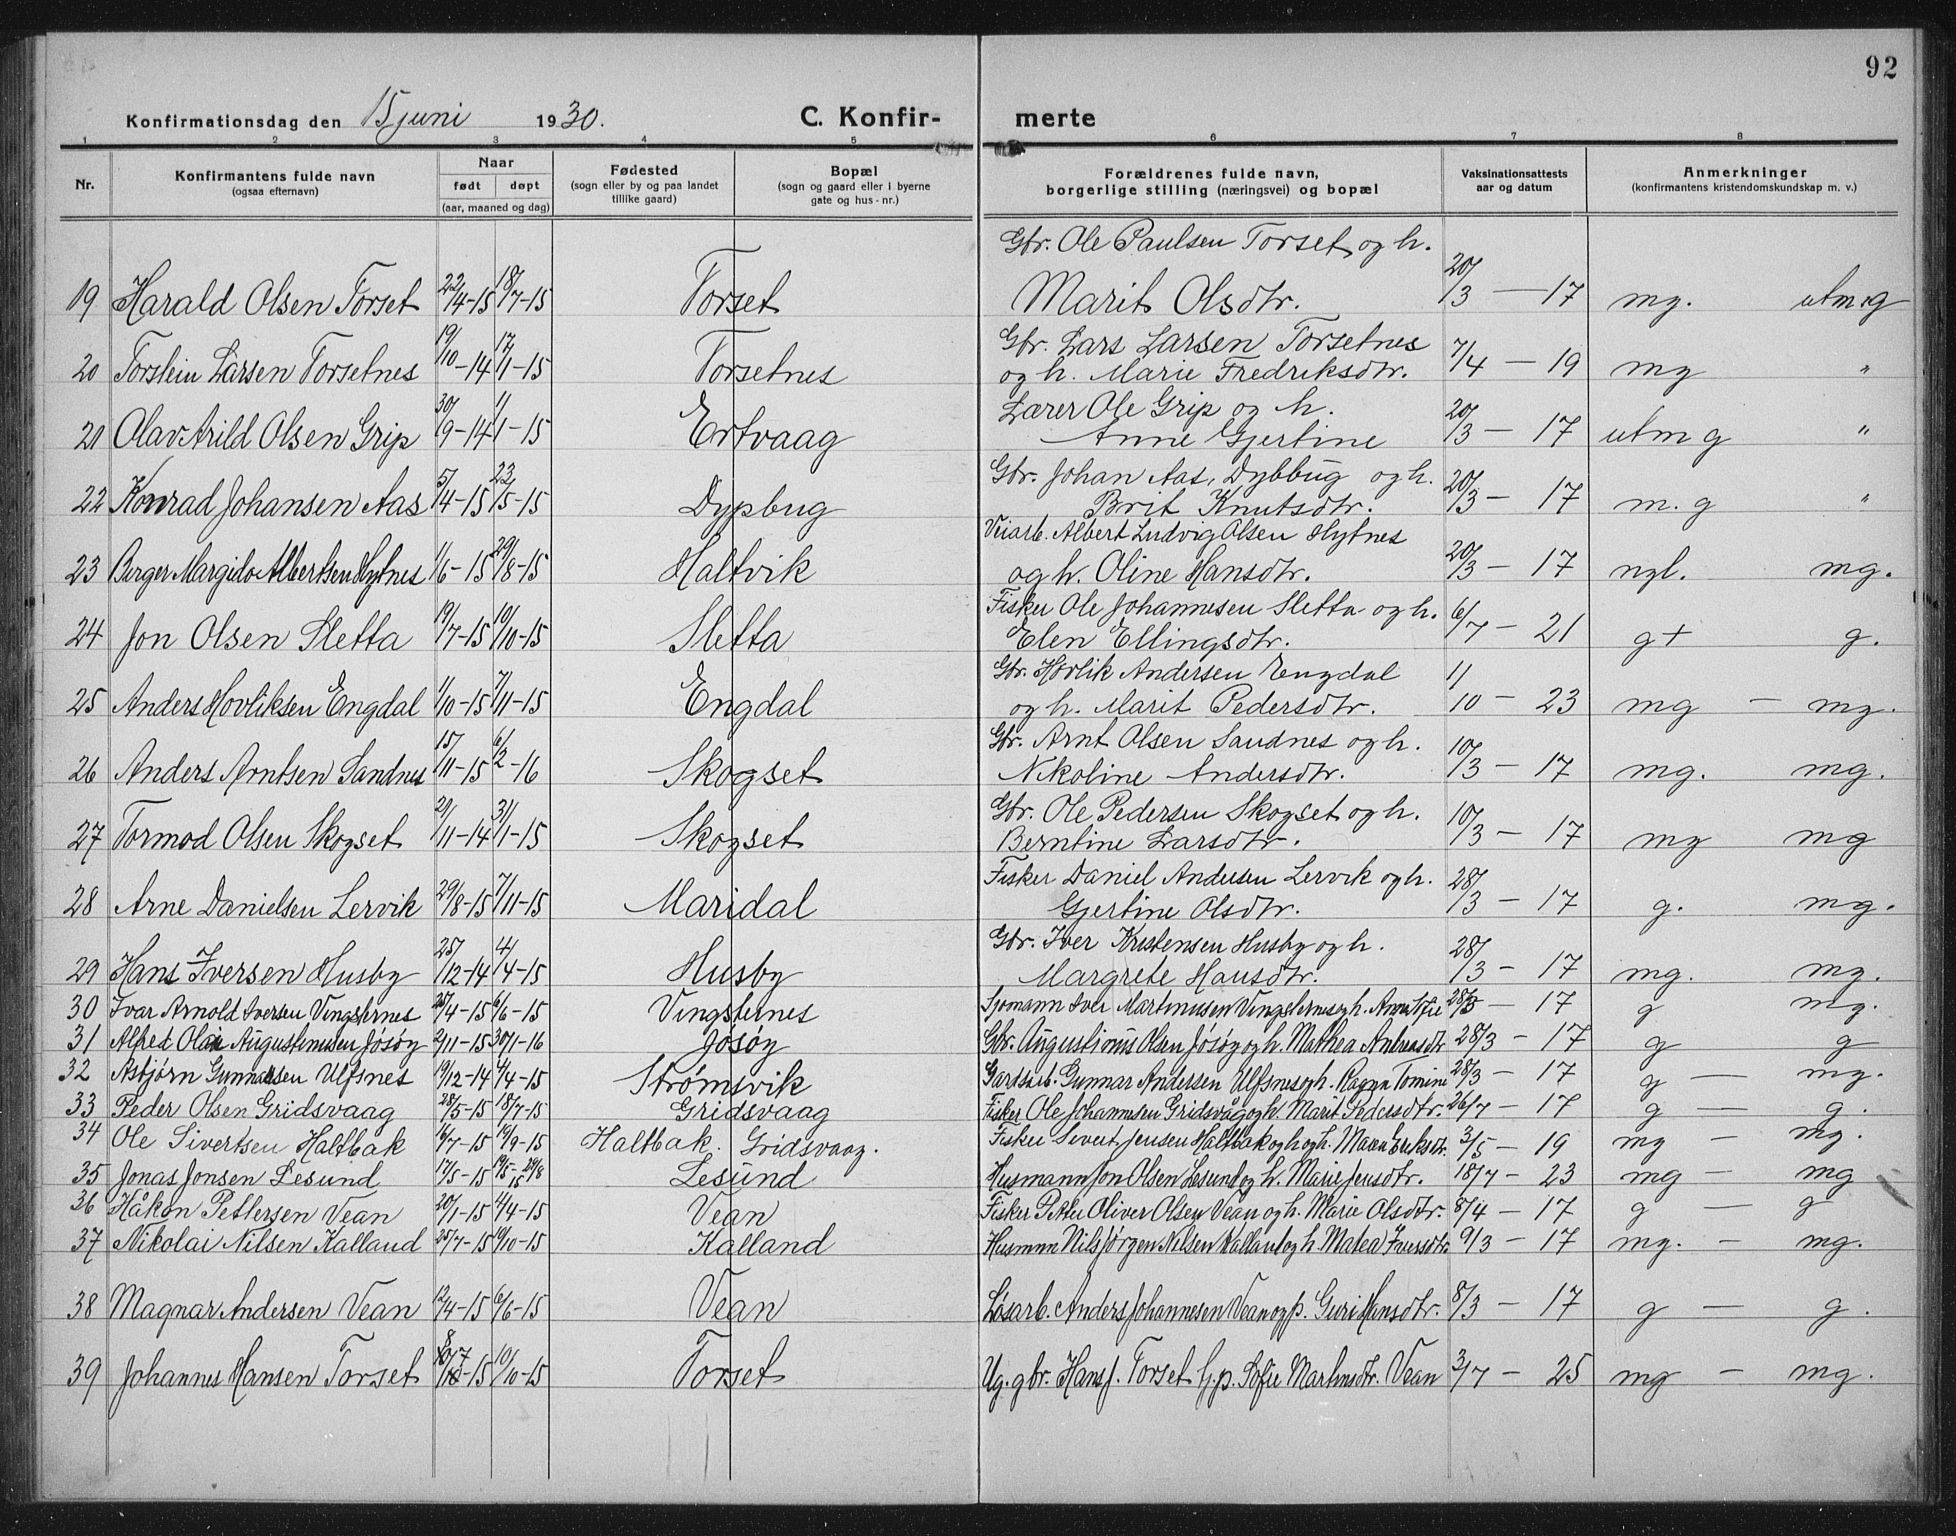 92
Konfirmationsdag den 15 juni 1930. C. Konfir- merte
1 2 3 4 5 6 7 8
Nr. Konfirmantens fulde navn (ogsaa efternavn) Naar født døpt (aar, maaned og dag) Fødested (sogn eller by og paa landet tillike gaard) Bopæl (sogn og gaard eller i byerne gate og hus-nr.) Forældrenes fulde navn, borgerlige stilling (næringsvei) og bopæl Vaksinationsattests aar og datum Anmerkninger (konfirmantens kristendomskundskap m. v.)
Gbr. Ole Paulsen Torset og h.
19 Harald Olsen Torset 22/4-15 18/7-15 Torset Marit Olsdtr. 20/3 - 17 mg. utmg
Gbr. Lars Larsen Torsetnes
20 Torstein Larsen Torsetnes 19/10-14 17/1-15 Torsetnes og h. Marie Fredriksdtr. 7/4 - 19 mg "
Lærer Ole Grip og h.
21 Olav Arild Olsen Grip 30/9-14 1/1-15 Ertvaag Anne Gjertine 20/3 - 17 utm g "
Gbr. Johan Aas, Dybbug og h.
22 Konrad Johansen Aas 5/4-15 23/5-15 Dypbug Brit Knutsdtr. 20/3 - 17 m.g "
Veiarb. Albert Ludvig Olsen Hytnes
23 Birger Margido Albertsen Hytnes 1/6-15 29/8-15 Haltvik og h. Oline Hansdtr. 20/3 - 17 ngl. mg.
Fisker Ole Johannesen Sletta og h.
24 Jon Olsen Sletta 19/7-15 10/10-15 Sletta Elen Ellingsdtr. 6/7 - 21 g+ g.
Gbr. Hovlik Andersen Engdal
25 Anders Hovliksen Engdal 1/10-15 7/11-15 Engdal og h. Marit Pedersdtr. 11/10 - 23 mg - mg.
Gbr. Arnt Olsen Sandnes og h.
26 Anders Arntsen Sandnes 15/11-15 6/2-16 Skogset Nikoline Andersdtr. 10/3 - 17 mg. mg.
Gbr. Ole Pedersen Skogset og h.
27 Tormod Olsen Skogset 21/11-14 31/1-15 Skogset Berntine Larsdtr. 10/3 - 17 mg mg
Fisker Daniel Andersen Lervik og h.
28 Arne Danielsen Lervik 29/8-15 7/11-15 Maridal Gjertine Olsdtr. 28/3 - 17 g. mg.
Gbr. Iver Kristensen Husby og h.
29 Hans Iversen Husby 25/12-14 4/4-15 Husby Margrete Hansdtr. 28/3 - 17 mg. mg.
30 Ivar Arnold Iversen Vingsternes 25/4-15 6/6-15 Vingsternes Sjømann Iver Martinussen Vingsternes og h. Anna 28/3 - 17 g mg.
31 Alfred Olai Augustinussen Jøsøy 2/11-15 30/1-16 Jøsøy Gbr. Augustinus Olsen Jøsøy og h. Mathea Andreasdtr 28/3 - 17 g g
32 Asbjørn Gunnarsen Ulfsnes 19/12-14 4/4-15 Strømsvik Gardsarb. Gunnar Andersen Ulfsnes og h. Ragna Tomine 28/3 - 17 g - mg.
33 Peder Olsen Gridsvaag 28/5-15 18/7-15 Gridsvaag Fisker Ole Johannesen Gridsvåg og h. Marit Pedersdtr. 26/7 - 17 g - g.
34 Ole Sivertsen Haltbak 16/7-15 19/9-15 Haltbak. Gridsvaag. Fisker Sivert Jensen Haltbak og h. og h. Maren Eriksdtr. 3/5 - 19 mg - mg.
35 Jonas Jonsen Lesund 17/5-15 29/8 Lesund Husmann Jon Olsen Lesund og h. Marie Jensdtr. 18/7 - 23 mg - mg
36 Håkon Pettersen Vean 20/1-15 4/4-15 Vean Fisker Petter Oliver Olsen Vean og h. Marie Olsdtr. 8/4 - 17 g - g
37 Nikolai Nilsen Kalland 25/7-15 10/10-15 Kalland Husmnn Nils Jörgen Nilsen Kalland og h. Matea Iversdtr. 9/3 - 17 mg. - mg.
38 Magnar Andersen Vean 12/4-15 6/6-15 Vean Løsarb. Anders Johannesen Vean og p. Guri Hansdtr. 8/3 - 17 g - g.
39 Johannes Hansen Torset 8/7-15 10/10-15 Torset Ug. gbr. Hans J. Torset h.p. Sofie Martinsdtr. Vean 3/7 - 25 mg - mg.